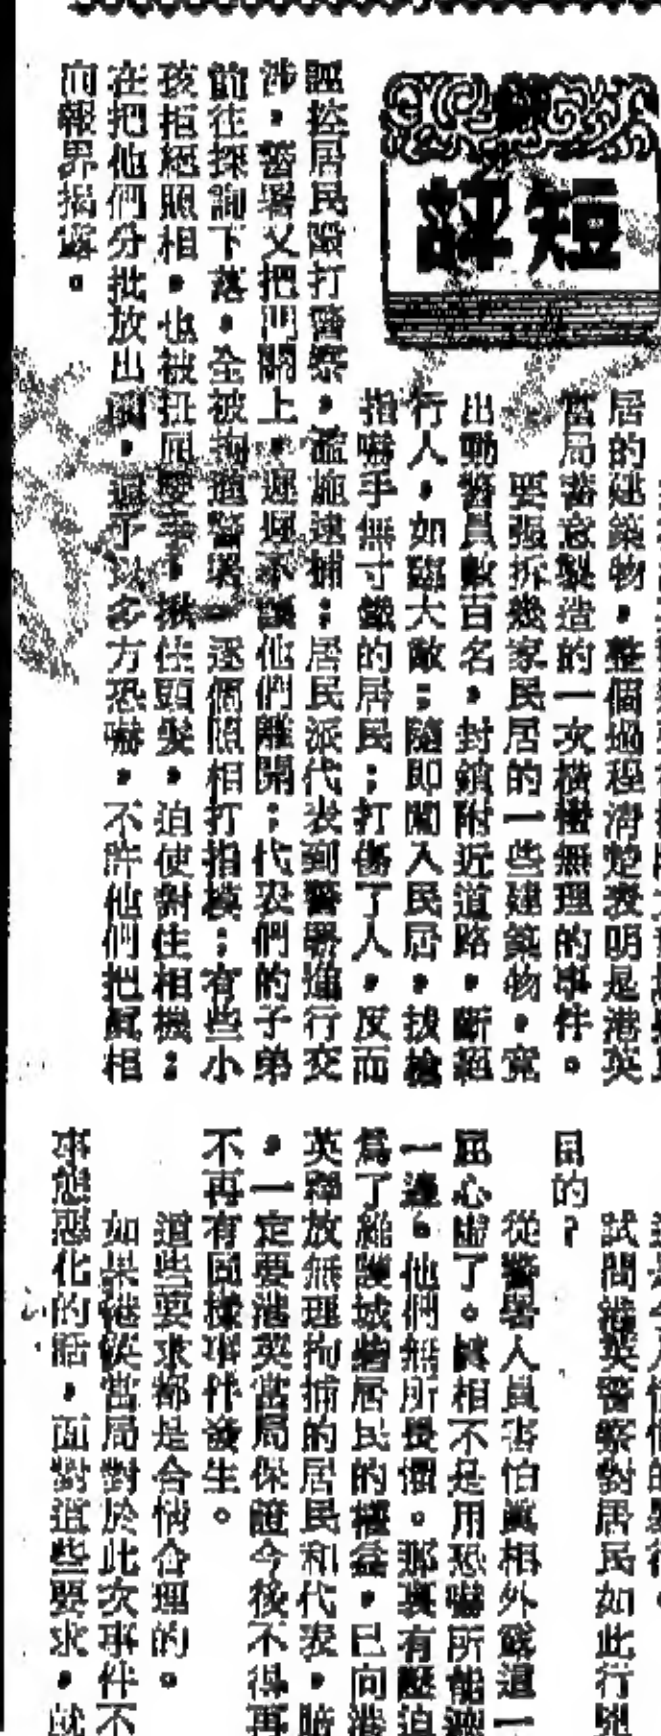 短評
居的建築物,整個過程清楚表明是港英
當局蓄意製造的一次橫蠻無理的事件。
要強拆幾家民居的一些建築物,竟
出動警員數百名,封鎖附近道路,斷絕
行人,如臨大敵;隨即闖入民居,拔槍
指嚇手無寸鐵的居民;打傷了人,反而
誣控居民毆打警察,濫施逮捕;居民派代表到警署進行交
涉,警署又把門關上,遲遲不讓他們離開;代表們的子弟
前往探詢下落,全被拘進警署,逐個照相打指模;有些小
孩拒絕照相,也被扭屈雙手,揪住頭髮,迫使對住相機;
在把他們分批放出後,還予以多方恐嚇,不許他們把眞相
向報界揭露。
試問港英警察對居民如此行兇
目的?
從警署人員害怕眞相外露這一
屈心虛了。眞相不是用恐嚇所能
一邊。他們無所畏懼。那裏有壓迫
爲了維護城砦居民的權益,已向港
英釋放無理拘捕的居民和代表,賠
,一定要港英當局保證今後不得再
不再有同樣事件發生。
這些要求都是合情合理的。
如果港英當局對於此次事件不
事態惡化的話,面對這些要求,就